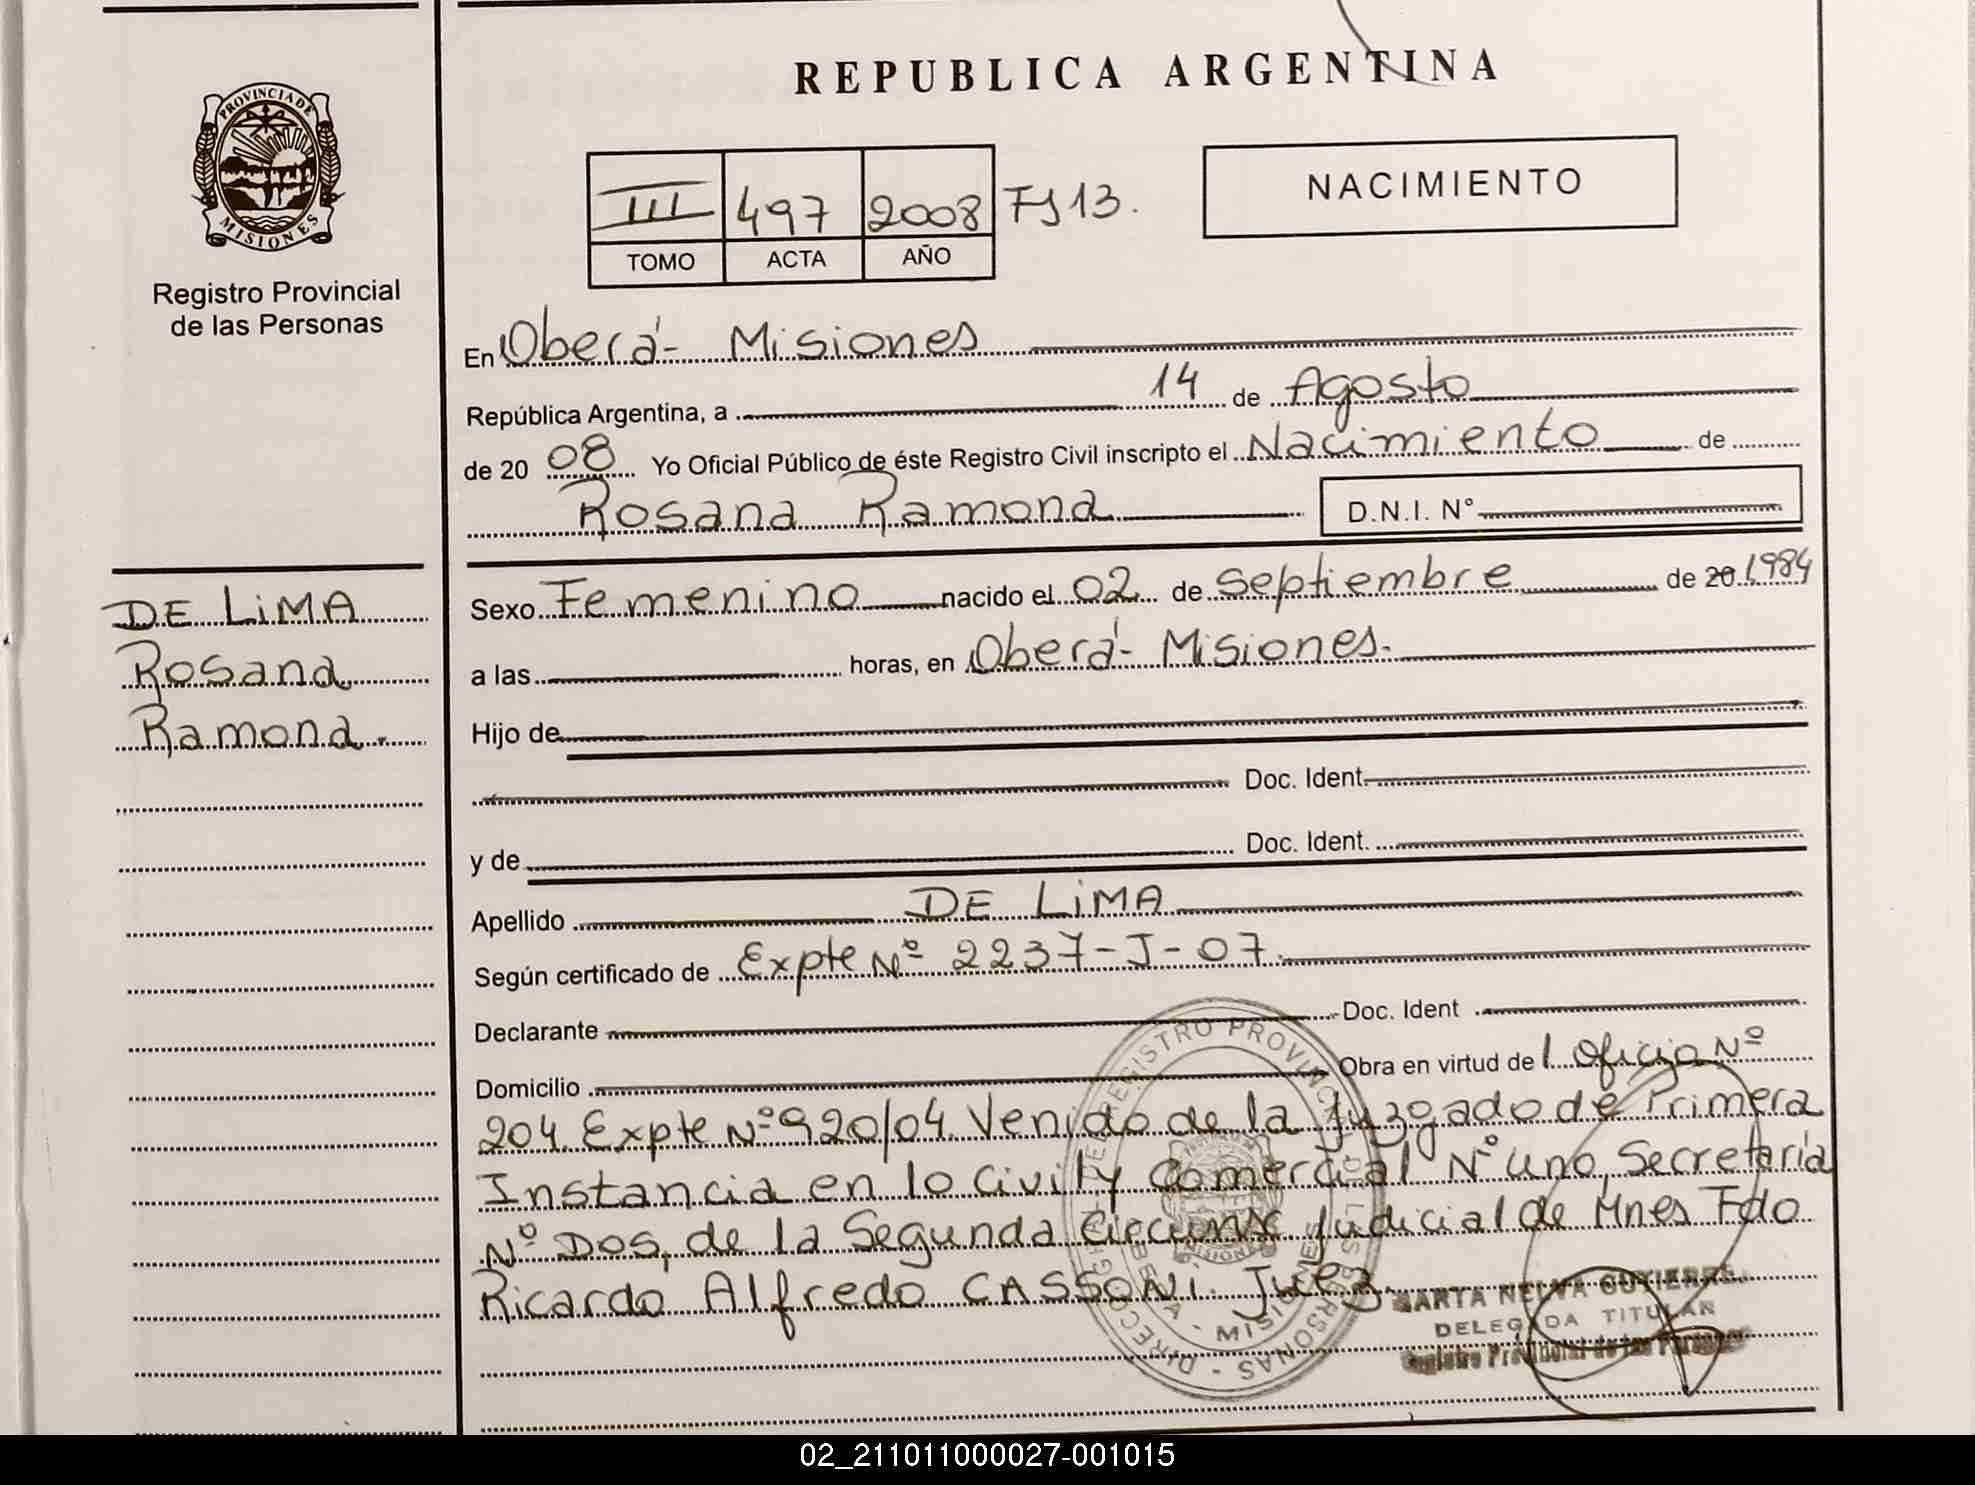 REPUBLICA ARGENTINA
PROVINCIA DE
MISIONES
Registro Provincial
de las Personas
III 497 2008 Fj 13.
TOMO ACTA AÑO
NACIMIENTO
En Oberá - Misiones
República Argentina, a 14 de Agosto
de 20 08 Yo Oficial Público de éste Registro Civil inscripto el Nacimiento de
Rosana Ramona D.N.I. N°
DE LiMA
Rosana
Ramona.
Sexo Femenino nacido el 02 de Septiembre de 20 1984
a las horas, en Oberá - Misiones.
Hijo de
Doc. Ident.
y de Doc. Ident.
Apellido DE LiMA
Según certificado de Expte Nº 2237-J-07.
Declarante Doc. Ident
Domicilio Obra en virtud del Oficio Nº
204 Expte Nº 920/04. Venido de la Juzgado de Primera
Instancia en lo Civil y Comercial Nº uno, Secretaría
Nº Dos, de la Segunda Judicial de Mnes Fdo
Ricardo Alfredo CASSONI. Juez.
MARTA
DELEGADA TITULAR
Registro Provincial de las Personas
REGISTRO PROVINCIAL
MISIONES
02_211011000027-001015